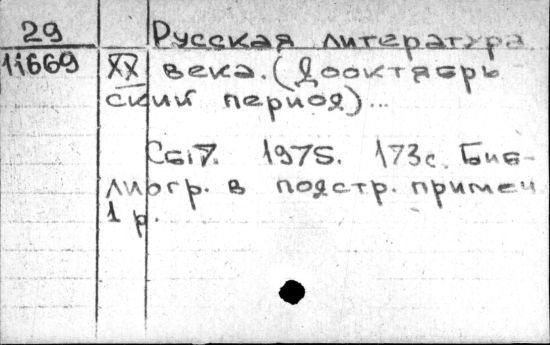 29 Русская литература
11669 XX века. (Дооктябрь
ский период)...
Сб.7. 1975. 173с. Биб-
лиогр. в подстр. примеч
1 р.